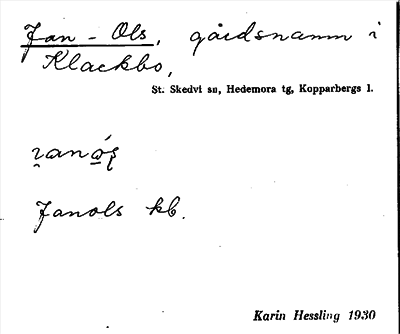 Jan-Ols, gårdsnamn i
Klackbo,
St. Skedvi sn, Hedemora tg, Kopparbergs l.
Janols kb.
Karin Hessling 1930